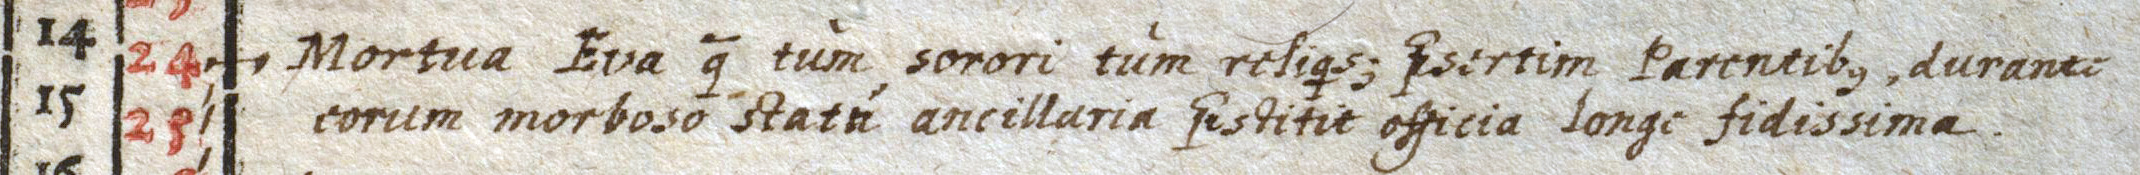 14 24 Mortua Eva q̄ tùm sorori tùm reliqs; p̄sertim Parentibꝰ, durante
15 25 eorum morboso statu ancillaria p̄stitit officia longe fidissima.